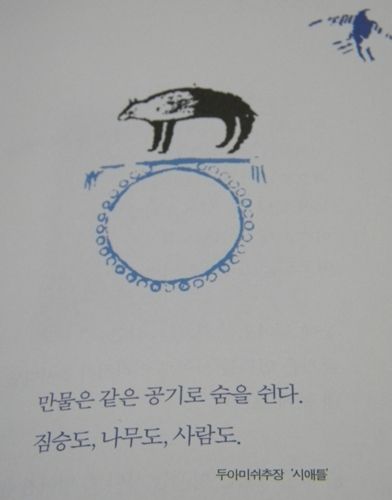 만물은 같은 공기로 숨을 쉰다.
짐승도, 나무도, 사람도.
두아미쉬추장 '시애틀'